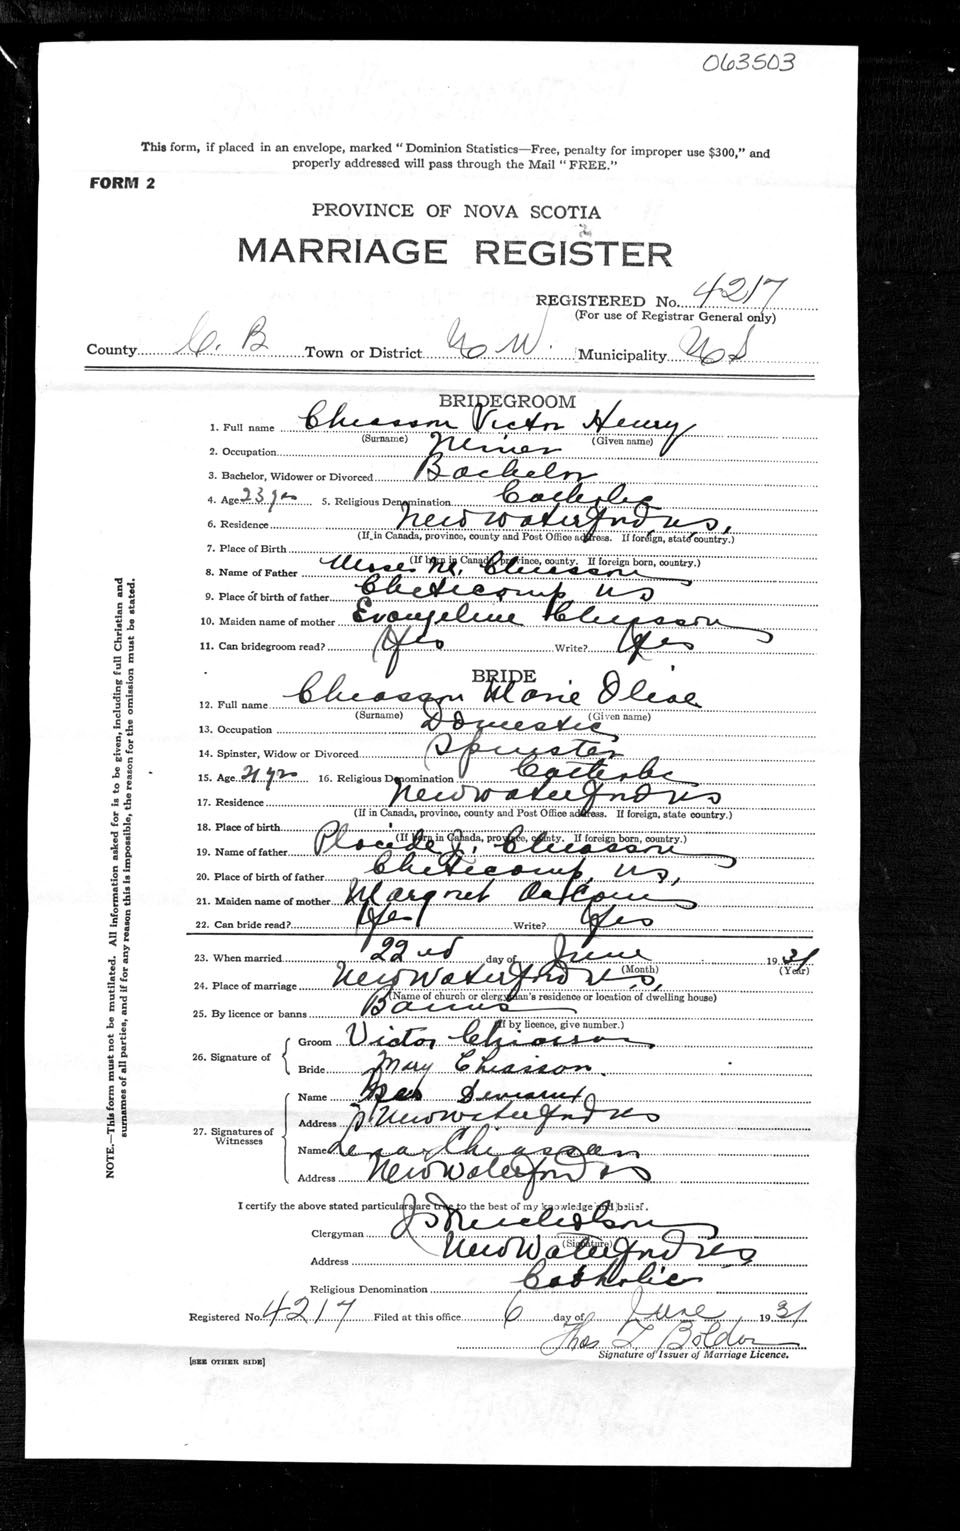 063503
This form, if placed in an envelope, marked "Dominion Statistics—Free, penalty for improper use $300," and
properly addressed will pass through the Mail "FREE."
FORM 2
PROVINCE OF NOVA SCOTIA
MARRIAGE REGISTER
REGISTERED No. 4217
(For use of Registrar General only)
County C. B Town or District N W. Municipality N S
BRIDEGROOM
1. Full name Chiasson Victor Henry
(Surname) (Given name)
2. Occupation Miner
3. Bachelor, Widower or Divorced Bachelor
4. Age 23 yrs 5. Religious Denomination Catholic
6. Residence New Waterford NS,
(If in Canada, province, county and Post Office address. If foreign, state country.)
7. Place of Birth
(If born in Canada, province, county. If foreign born, country.)
8. Name of Father Moses M. Chiasson
9. Place of birth of father Cheticamp NS
10. Maiden name of mother Evangeline Chiasson
11. Can bridegroom read? Yes Write? Yes
BRIDE
12. Full name Chiasson Marie Olive
(Surname) (Given name)
13. Occupation Domestic
14. Spinster, Widow or Divorced Spinster
15. Age 21 yrs 16. Religious Denomination Catholic
17. Residence New Waterford NS
(If in Canada, province, county and Post Office address. If foreign, state country.)
18. Place of birth
(If born in Canada, province, county. If foreign born, country.)
19. Name of father Placide J. Chiasson
20. Place of birth of father Cheticamp, NS,
21. Maiden name of mother Margret
22. Can bride read? Yes Write? Yes
23. When married 22nd day of June 1931
(Month) (Year)
24. Place of marriage New Waterford N.S,
(Name of church or clergyman's residence or location of dwelling house)
25. By licence or banns Banns
(If by licence, give number.)
26. Signature of Groom Victor Chiasson
Bride Mary Chiasson.
27. Signatures of Witnesses
Name
Address New Waterford NS
Name Lena Chiasson
Address New Waterford NS
I certify the above stated particulars are true to the best of my knowledge and belief.
Clergyman
(Signature)
Address New Waterford NS
Religious Denomination Catholic
Registered No. 4217 Filed at this office 6 day of June 1931
Thos L Boldon
Signature of Issuer of Marriage Licence.
[SEE OTHER SIDE]
NOTE.—This form must not be mutilated. All information asked for is to be given, including full Christian and
surnames of all parties, and if for any reason this is impossible, the reason for the omission must be stated.